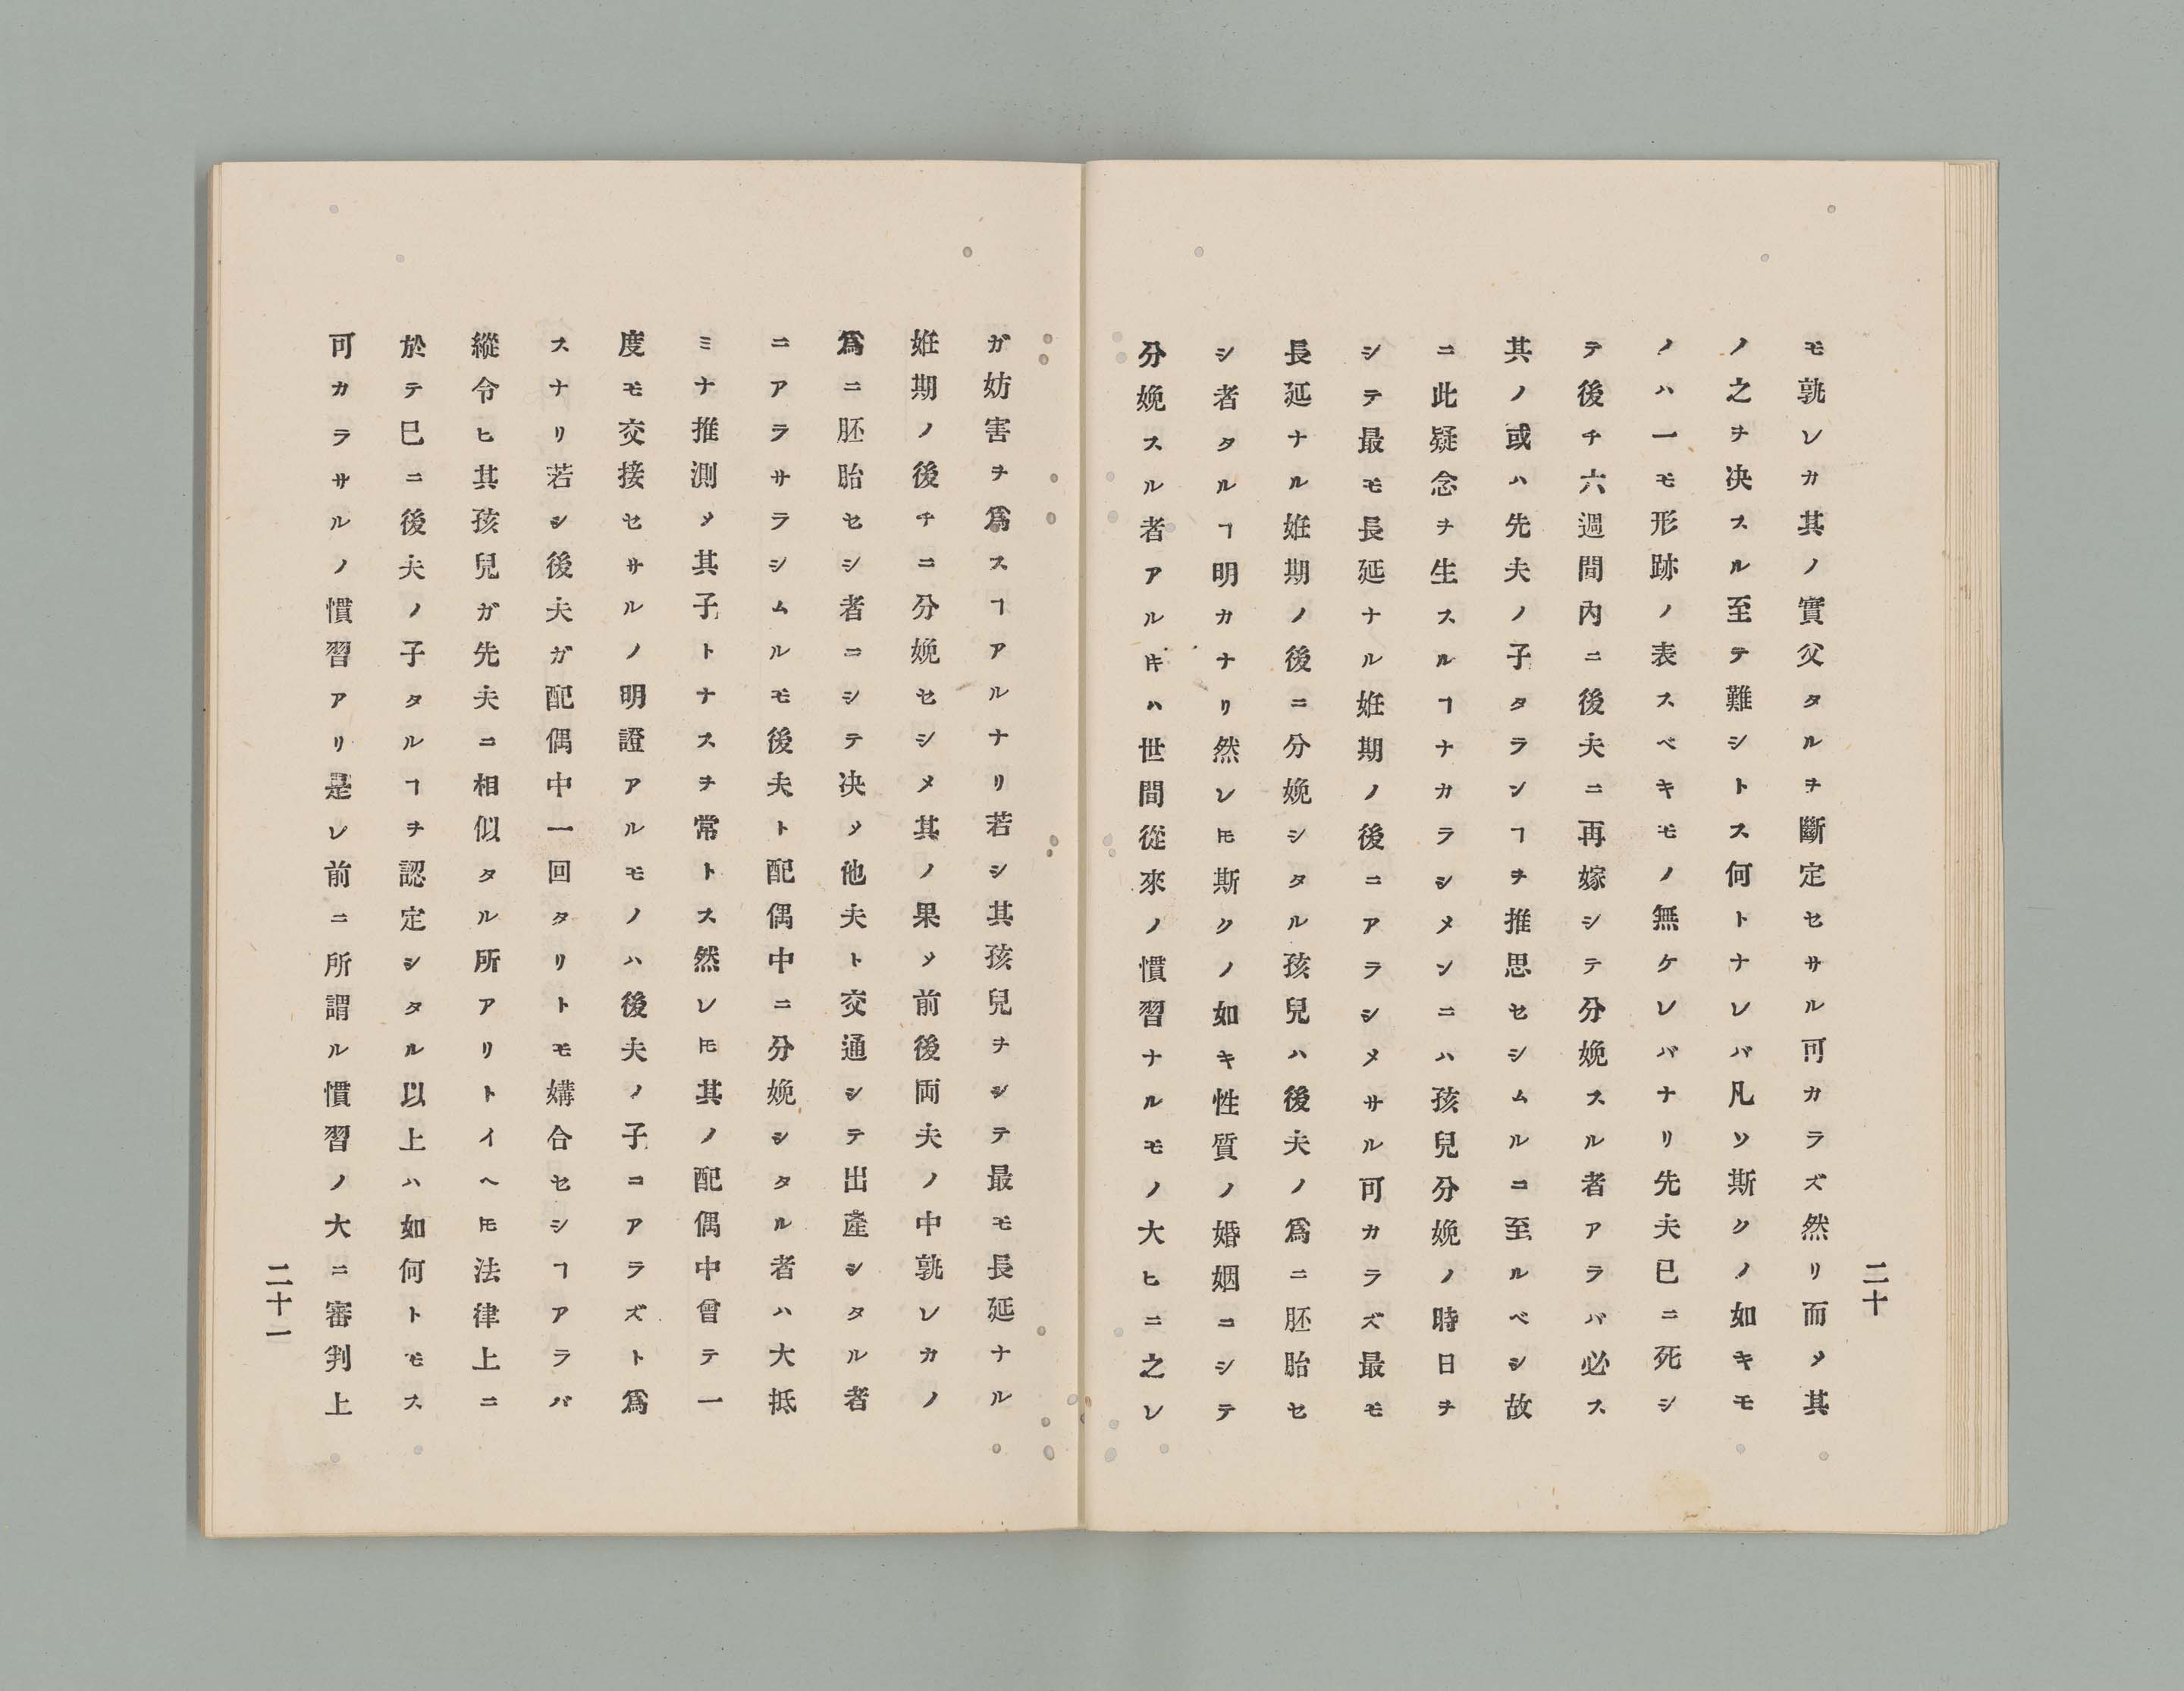 モ孰レカ其ノ實父タルヲ斷定セサル可カラズ然リ而メ其
ノ之ヲ决スル至テ難シトス何トナレバ凡ソ斯クノ如キモ
ノハ一モ形跡ノ表スベキモノ無ケレバナリ先夫已ニ死シ
テ後チ六週間內ニ後夫ニ再嫁シテ分娩スル者アラバ必ス
其ノ或ハ先夫ノ子タランヿヲ推思セシムルニ至ルベシ故
ニ此疑念ヲ生スルヿナカラシメンニハ孩兒分娩ノ時日ヲ
シテ最モ長延ナル姙期ノ後ニアラシメサル可カラズ最モ
長延ナル姙期ノ後ニ分娩シタル孩兒ハ後夫ノ爲ニ胚胎セ
シ者タルヿ明カナリ然レ𪜈斯クノ如キ性質ノ婚姻ニシテ
分娩スル者アル𪜈ハ世間從來ノ慣習ナルモノ大ヒニ之レ
二十
ガ妨害ヲ爲スヿアルナリ若シ其孩兒ヲシテ最モ長延ナル
姙期ノ後チニ分娩セシメ其ノ果メ前後両夫ノ中孰レカノ
爲ニ胚胎セシ者ニシテ决メ他夫ト交通シテ出產シタル者
ニアラサラシムルモ後夫ト配偶中ニ分娩シタル者ハ大抵
ミナ推測メ其子トナスヲ常トス然レ𪜈其ノ配偶中曾テ一
度モ交接セサルノ明證アルモノハ後夫ノ子ニアラズト爲
スナリ若シ後夫ガ配偶中一回タリトモ媾合セシヿアラバ
縱令ヒ其孩兒ガ先夫ニ相似タル所アリトイヘ𪜈法律上ニ
於テ已ニ後夫ノ子タルヿヲ認定シタル以上ハ如何トモス
可カラサルノ慣習アリ是レ前ニ所謂ル慣習ノ大ニ審判上
二十一